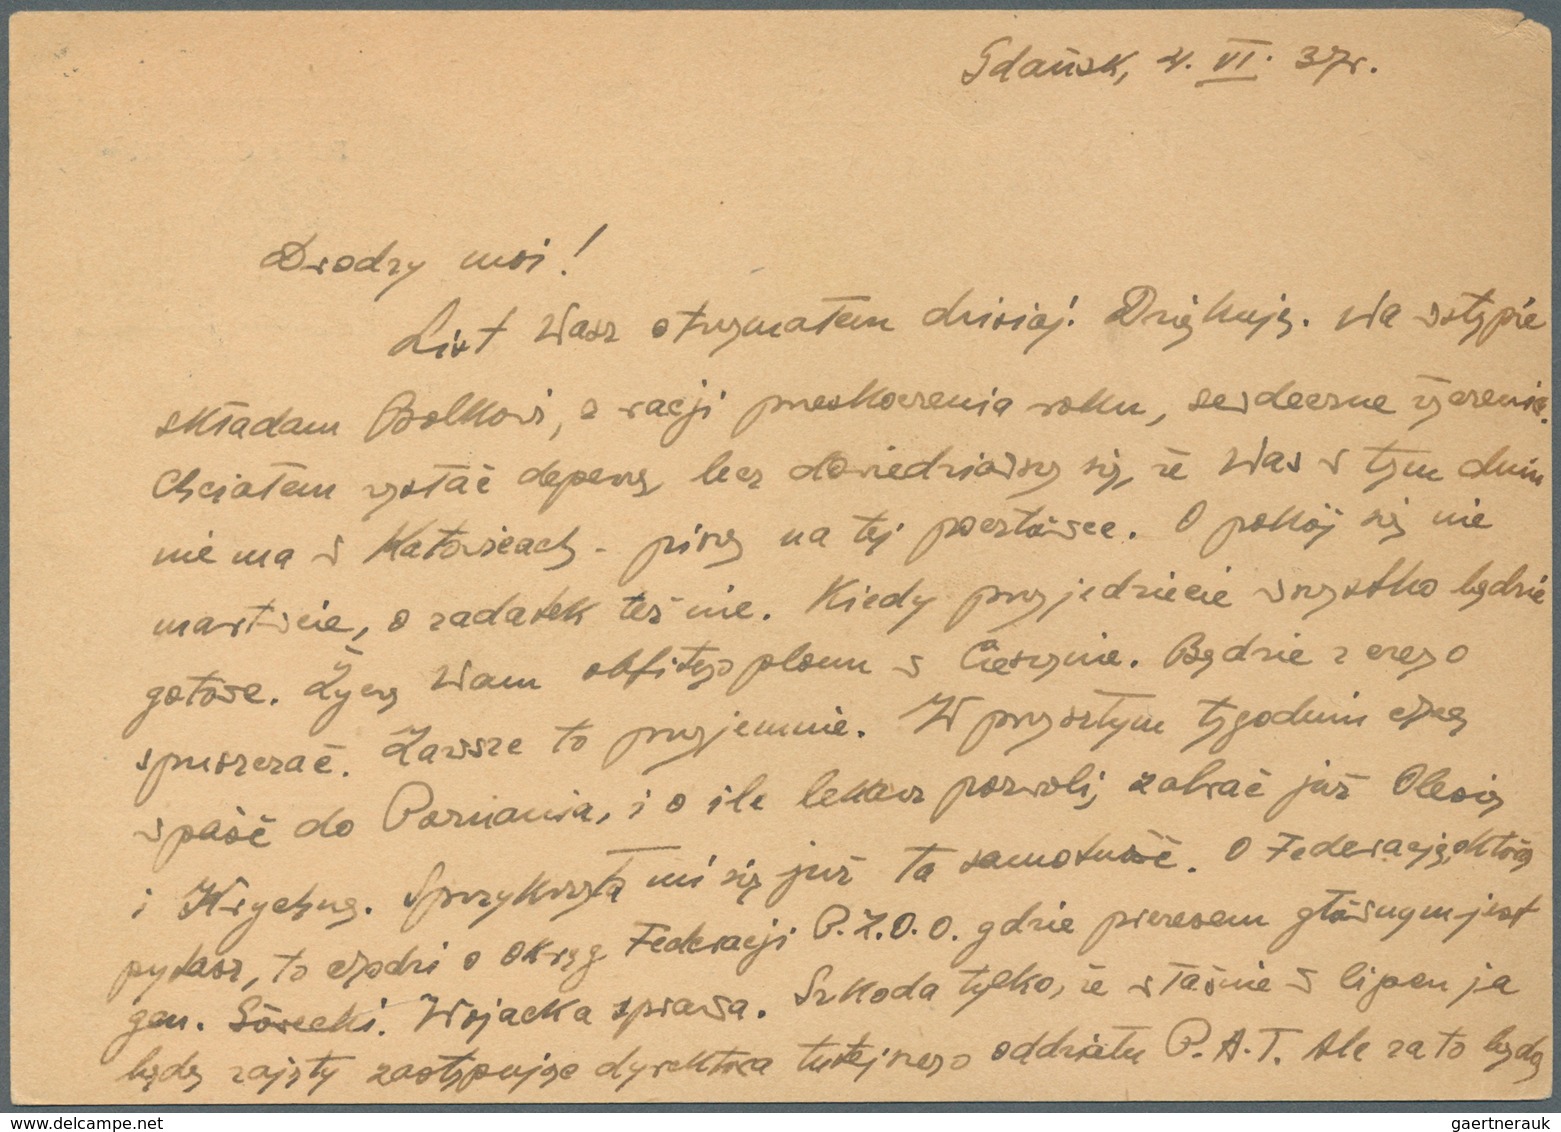 Gdańsk, 4. VI. 37r.
Drodzy moi!
List Wasz otrzymałem dzisiaj! Dziękuję. Na wstępie
składam Bolkowi, z racji przeskoczenia roku, serdeczne życzenia.
Chciałem wysłać depeszę, lecz dowiedziawszy się, że Was w tym dniu
nie ma w Katowicach - piszę na tej pocztówce. O pokój się nie
martwcie, o zadatek też nie. Kiedy przyjedziecie wszystko będzie
gotowe. Życzę Wam obfitego plonu w Cieszynie. Będzie z czego
spuszczać. Zawsze to przyjemnie. W przyszłym tygodniu chcę
wpaść do Poznania, i o ile lekarz pozwoli, zabrać już Olesię
i Krychnę. Sprzykrzyła mi się już ta samotność. O Federację, którą
pytasz, to chodzi o Okręg Federacji P.Z.O.O. gdzie prezesem głównym jest
gen. Górecki. Wojacka sprawa. Szkoda tylko, że właśnie w lipcu ja
będę zajęty zastępując dyrektora tutejszego oddziału P.A.T. Ale za to będę
gaertnerauk